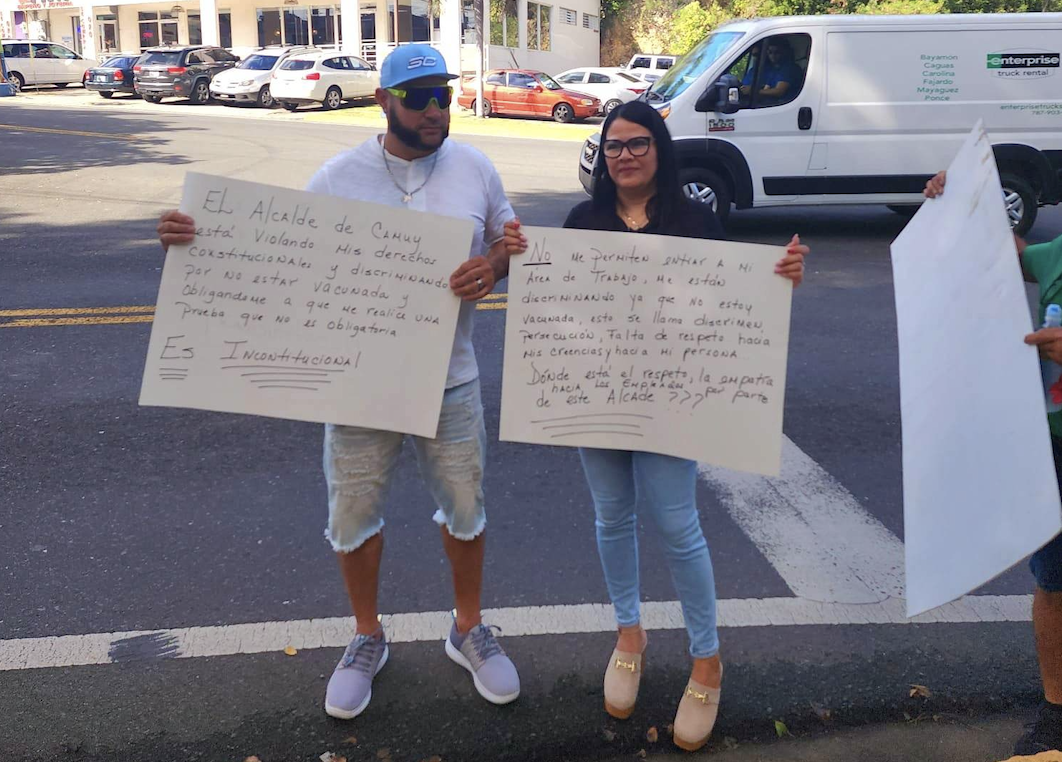 SC
EL Alcalde de Camuy
está Violando Mis derechos
constitucionales y discriminando
por no estar vacunada y
obligandome a que me realice una
Prueba que no es obligatoria
Es Incontitucional
No me permiten entrar a mi
Área de Trabajo, me están
discriminando ya que no estoy
vacunada, esto se llama discrimen,
Persecución, Falta de respeto hacia
Mis creencias y hacia mi persona
Dónde está el respeto, la empatía
hacia los Empleados por parte
de este Alcade ???
Bayamón
Caguas
Carolina
Fajardo
Mayagüez
Ponce
enterprise
truck rental
RAM